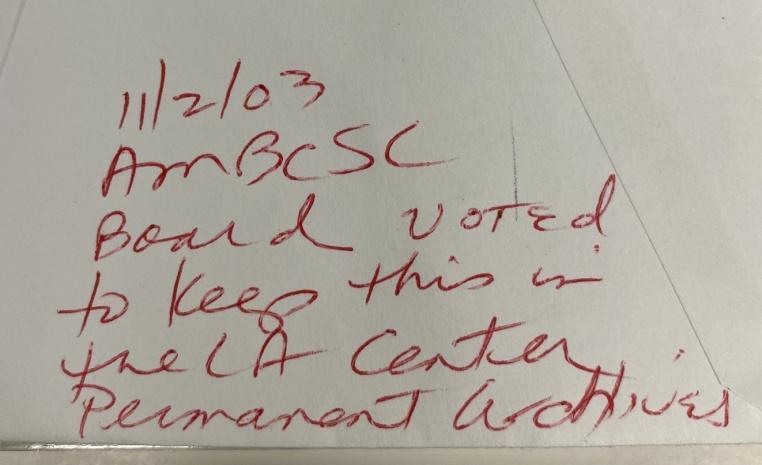 11/2/03
AmBCSC
Board voted
to keep this in
the LA Center
Permanent Archives